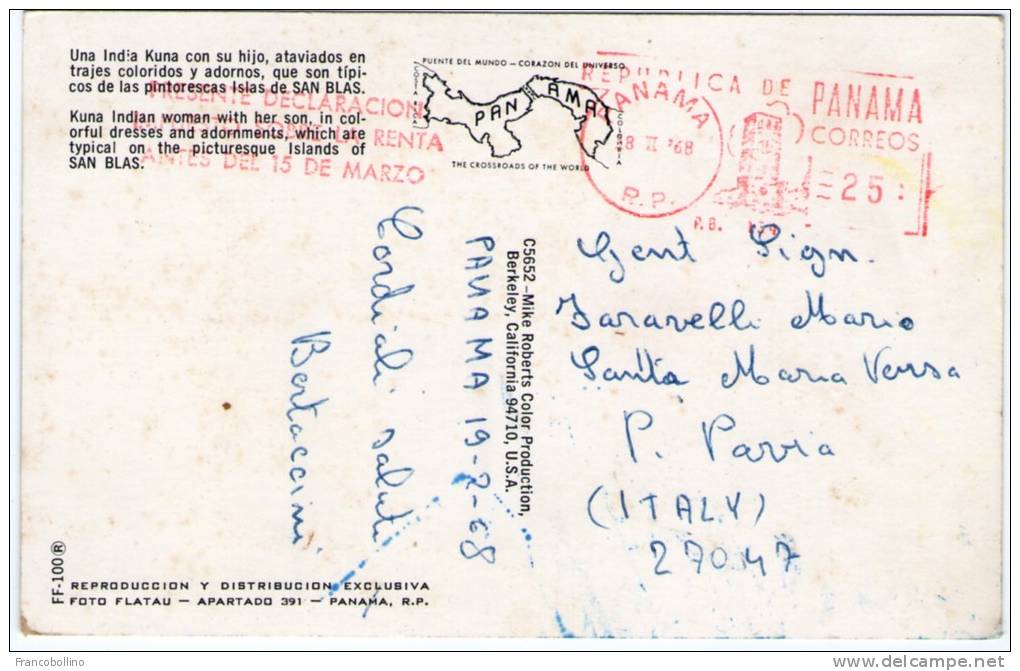 Una India Kuna con su hijo, ataviados en
trajes coloridos y adornos, que son típi-
cos de las pintorescas Islas de SAN BLAS.
Kuna Indian woman with her son, in col-
orful dresses and adornments, which are
typical on the picturesque Islands of
SAN BLAS.
PRESENTE DECLARACION
SOBRE LA RENTA
ANTES DEL 15 DE MARZO
PUENTE DEL MUNDO — CORAZON DEL UNIVERSO
COSTA RICA
PANAMA
COLOMBIA
THE CROSSROADS OF THE WORLD
REPUBLICA DE PANAMA
CORREOS
PANAMA
8 II '68
R.P.
25
P.B.
Cordiali saluti
PANAMA 19-2-68
Bertaccini
C5652 —Mike Roberts Color Production,
Berkeley, California 94710, U.S.A.
Gent Sign.
Zaravelli Mario
Santa Maria Versa
P. Pavia
(ITALY)
27047
FF-100 ®
REPRODUCCION Y DISTRIBUCION EXCLUSIVA
FOTO FLATAU — APARTADO 391 — PANAMA, R.P.
Francobollino
www.delcampe.net